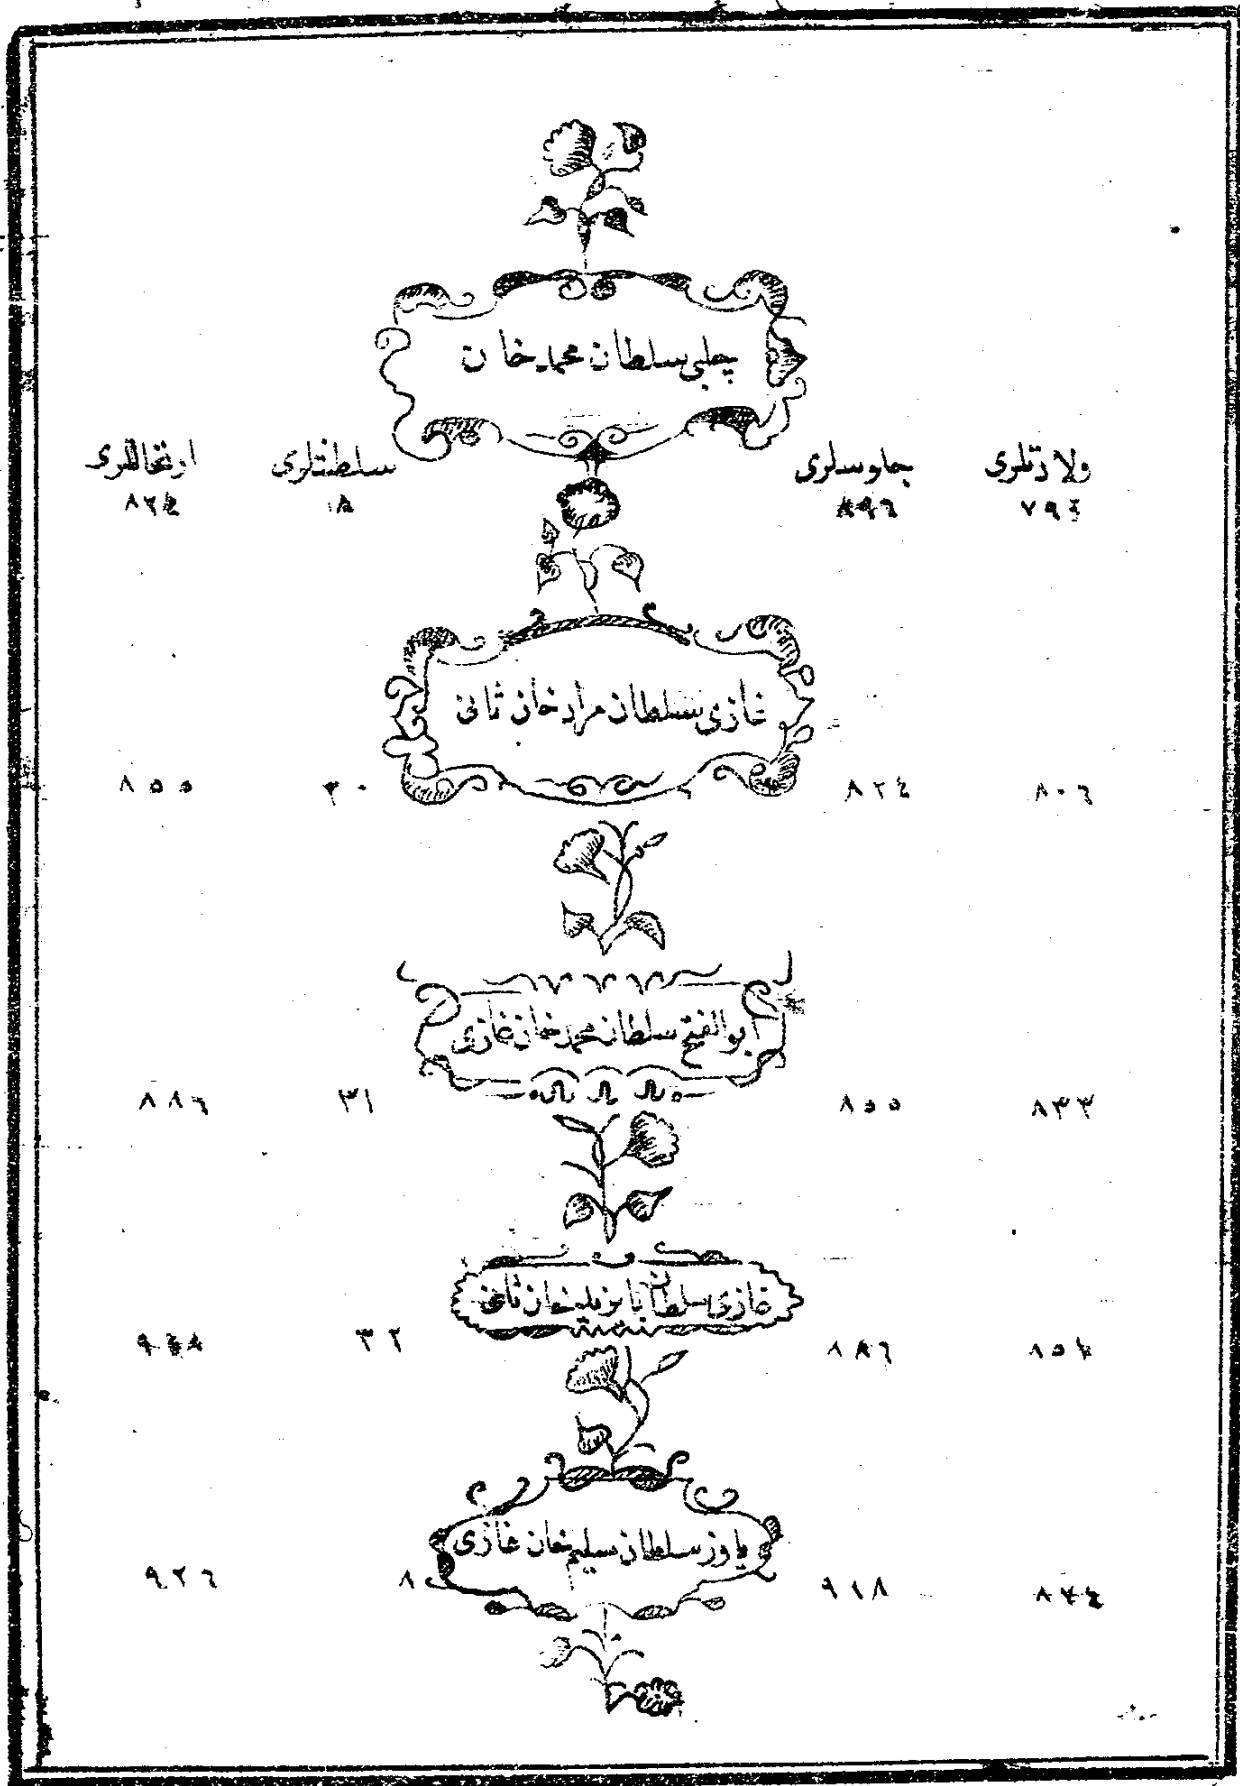 چلبی سلطان محمد خان
ولادتلری جلوسلری سلطنتلری ارتحاللری
٧٩٤ ٨٢٤
غازی سلطان مراد خان ثانی
٨٠٦ ٨٢٤ ٣٠ ٨٥٥
ابو الفتح سلطان محمد خان غازی
٨٣٣ ٨٥٥ ٣١ ٨٨٦
غازی سلطان بایزید خان ثانی
٨٨٦ ٣٢
یاوز سلطان سلیم خان غازی
٩١٨ ٨ ٩٢٦